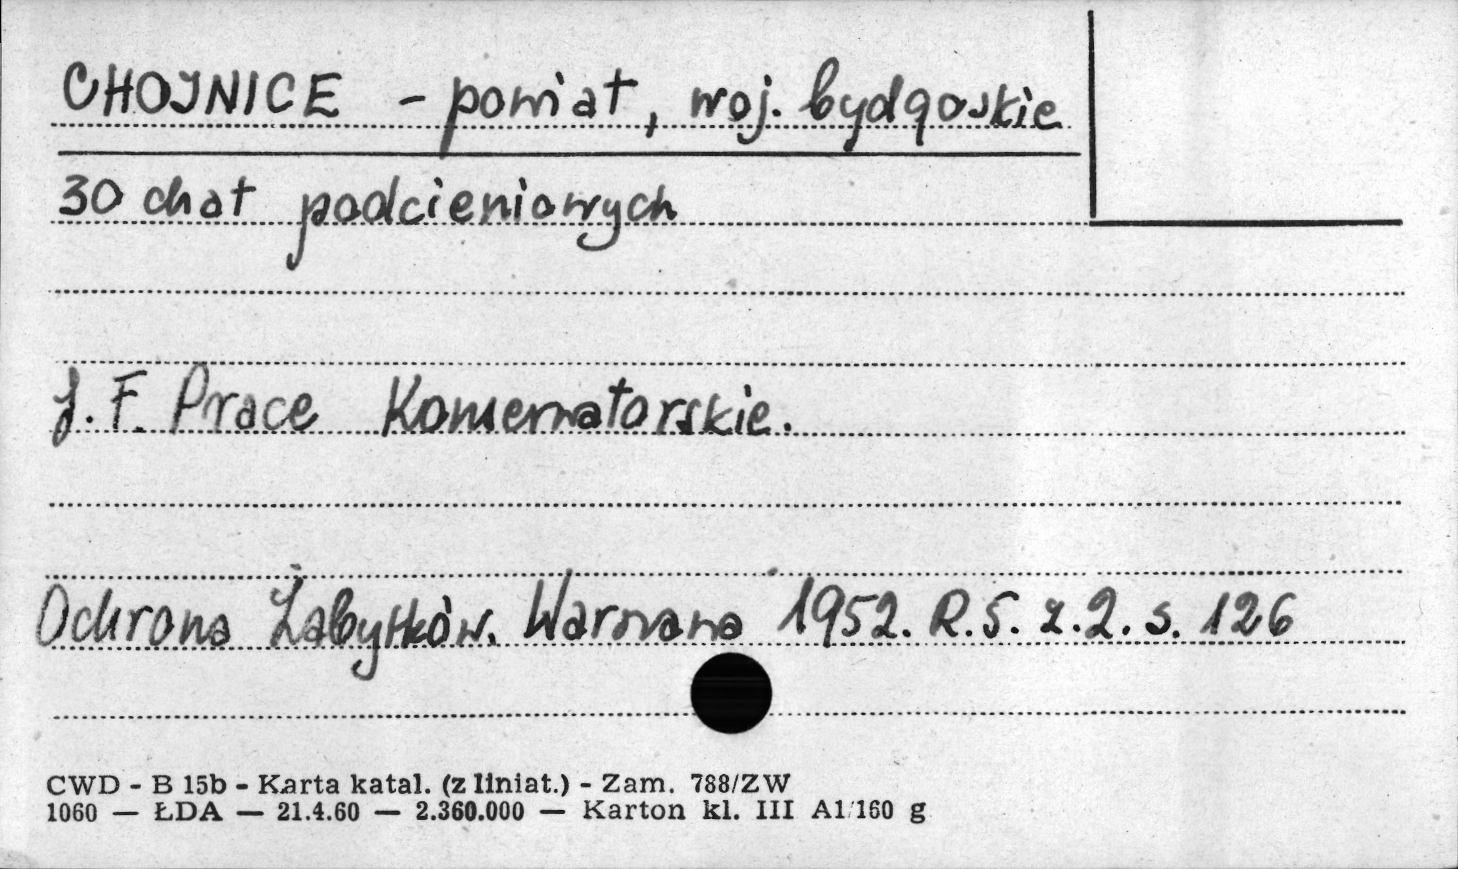 CHOJNICE - powiat, woj. bydgoskie
30 chat podcieniowych
J. F. Prace Konserwatorskie.
Ochrona Zabytków. Warszawa 1952. R.5. z.2. s. 126
CWD - B 15b - Karta katal. (z liniat.) - Zam. 788/ZW
1060 — ŁDA — 21.4.60 — 2.360.000 — Karton kl. III A1/160 g